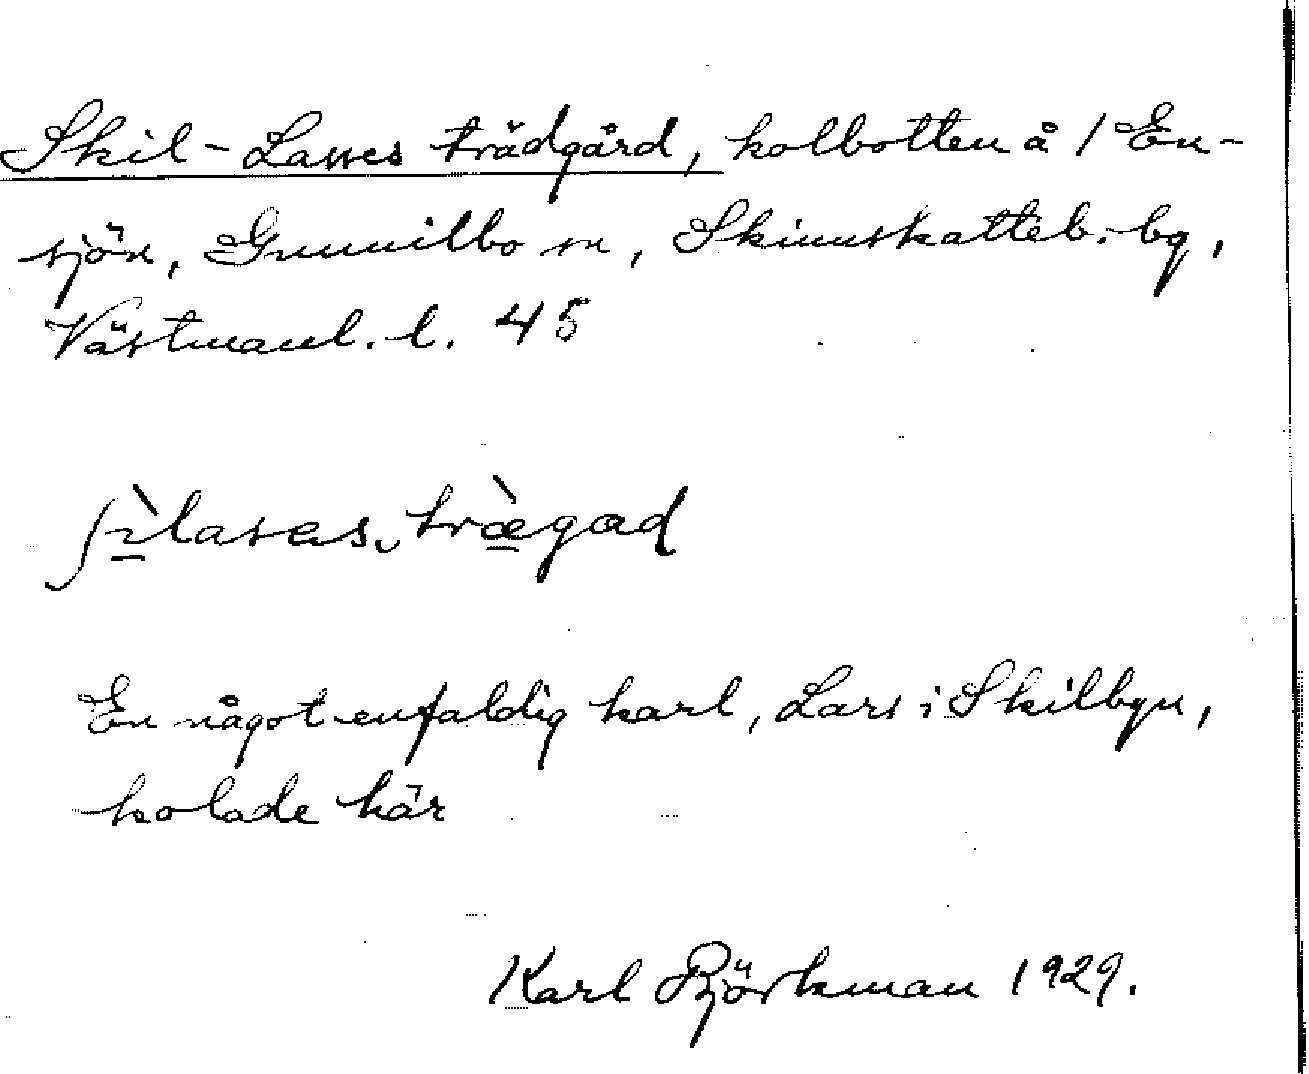 Skil-Lasses trädgård, kolbotten å 1 En-
sjön, Gunnilbo sn, Skinnskatteb. bg,
Västmanl. l. 45
ʃìlases trægad
En något enfaldig karl, Lars i Skilbyn,
kolade här
Karl Björkman 1929.